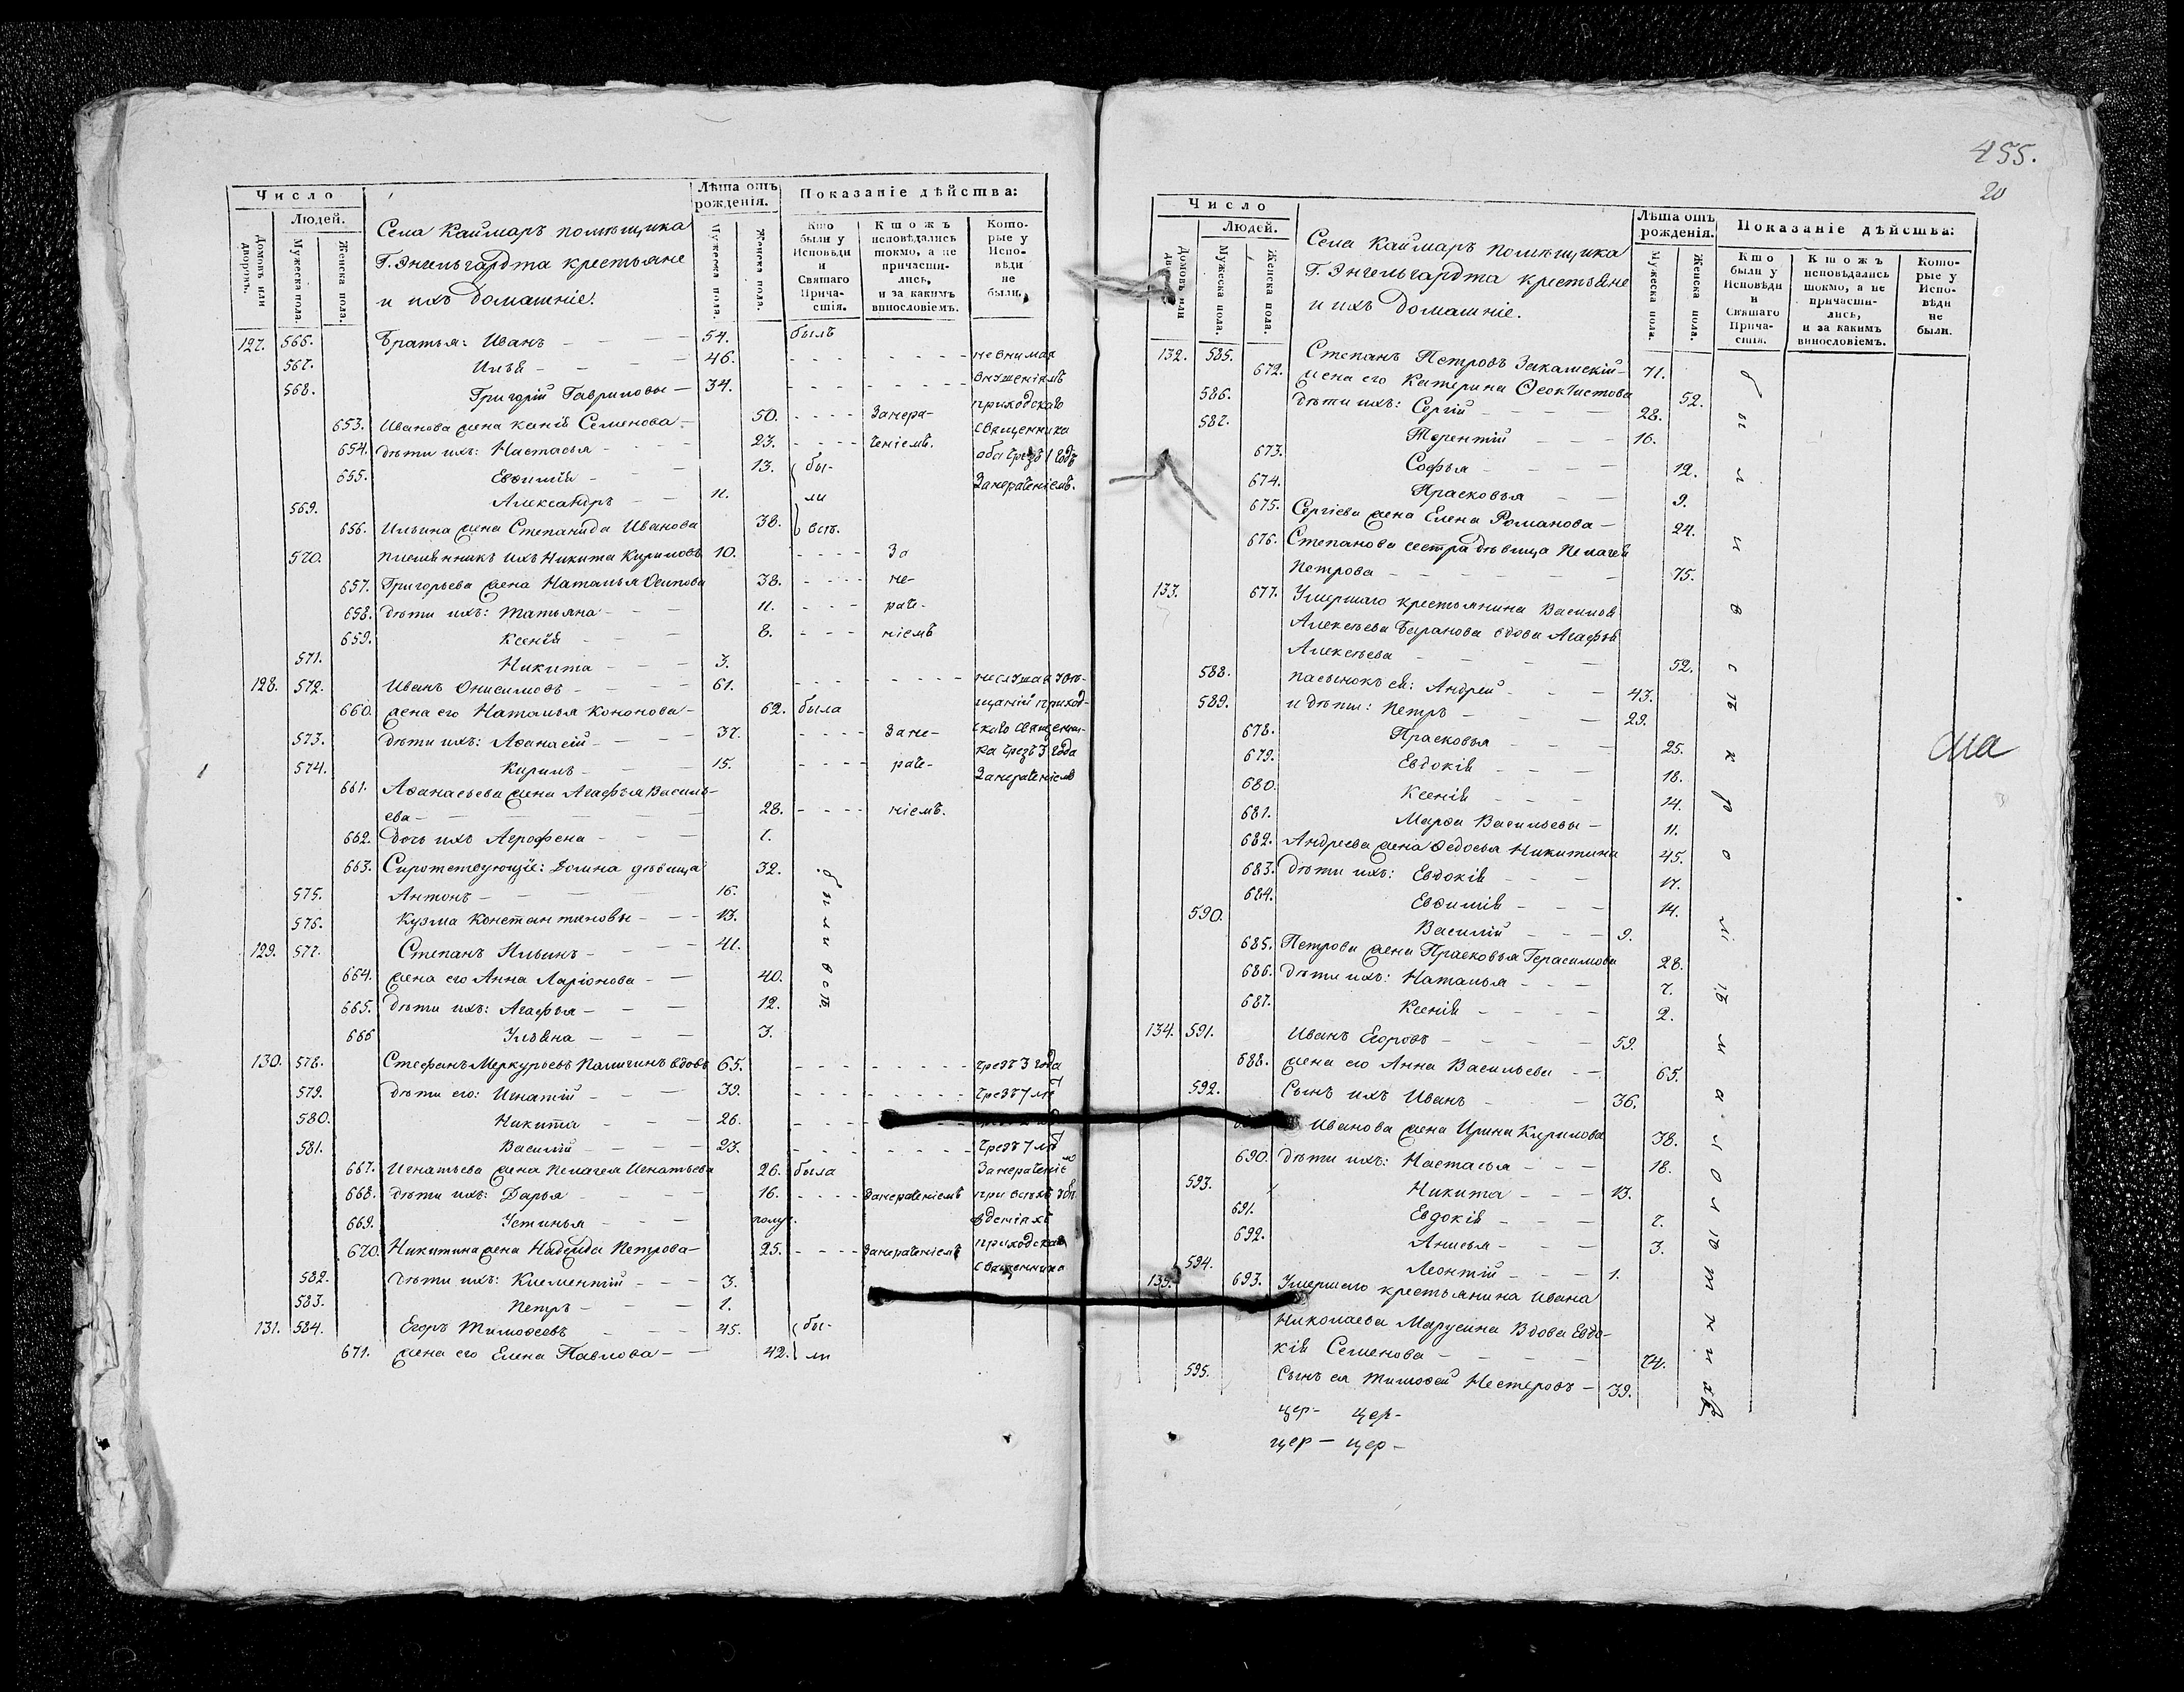 Число
Людей.
Домовъ или дворовъ.
Мужеска пола.
Женска пола.
Села Каймаръ помѣщика
Г. Энгельгардта крестьяне
и ихъ домашніе.
Лѣта отъ рожденія.
Мужеска пола.
Женска пола.
Показаніе дѣйства:
Кто были у Исповѣди и Святаго Прича-стія.
Ктожъ исповѣдались токмо, а не причасти-лись, и за какимъ винословіемъ.
Кото-рые у Испо-вѣди не были.
127. 566. Братья: Иванъ 54. былъ
567. Илья 46. не внимая
568. Григорій Гавриловы 34. внушеніямъ
приходскаго
653. Иванова жена Ксенія Семенова 50. Занера- священника
654. дѣти ихъ: Настасья 23. ченіемъ. оба чрезъ 1 годъ
655. Евфимія 13. бы- Занераченіемъ.
569. Александръ 11. ли
656. Ильина жена Степанида Иванова 38. всѣ.
570. племянникъ ихъ Никита Кириловъ 10. За
657. Григорьева жена Наталья Осипова 38. не-
658. дѣти ихъ: Татьяна 11. раче-
659. Ксенія 8. ніемъ
571. Никита 3.
128. 572. Иванъ Онисимовъ 61. неслушая увѣ-
660. жена его Наталья Кононова 62. была щаній приход-
573. дѣти ихъ: Аѳанасій 37. Зане- скаго священни-
ка чрезъ 3 года
574. Кирилъ 15. раче- Занераченіемъ
661. Аѳанасьева жена Агафья Василь-
ева 28. ніемъ.
662. дочь ихъ Агрофена 1.
663. Сиротствующіе: Домна дѣвица 32. были всѣ
575. Антонъ 16.
576. Кузма Константиновы 13.
129. 577. Степанъ Ильинъ 41.
664. жена его Анна Ларіонова 40.
665. дѣти ихъ: Агафья 12.
666 Ульяна 3.
130. 578. Стефанъ Меркурьевъ вдовъ 65. чрезъ 3 года
579. дѣти его: Игнатій 39. чрезъ 7 лѣ
580. Никита 26.
581. Василій 23. чрезъ 7 лѣ
667. Игнатьева жена Пелагея Игнатьева 26. была Занераченіе
668. дѣти ихъ: Дарья 16. Занераченіемъ при всѣхъ убѣ
669. Устинья полуг. жденіяхъ
670. Никитина жена Надежда Петрова 25. Занераченіемъ приходскаго
священника
582. дѣти ихъ: Климентій 3.
583. Петръ 1.
131. 584. Егоръ Тимоѳеевъ 45. бы-
671. жена его Елена Павлова 42. ли
455.
20
Число
Людей.
Домовъ или
Мужеска пола.
Женска пола.
Села Каймаръ помѣщика
Г. Энгельгардта крестьяне
и ихъ домашніе.
Лѣта отъ рожденія.
Мужеска пола.
Женска пола.
Показаніе дѣйства:
Кто были у Исповѣди и Святаго Прича-стія.
Ктожъ исповѣдались токмо, а не причасти-лись, и за какимъ винословіемъ.
Кото-рые у Испо-вѣди не были.
132. 585. Степанъ Петровъ Закамскій 71.
672. жена его Катерина Ѳеоктистова 52.
586. дѣти ихъ: Сергій 28.
587. Терентій 16.
673. Софья 12.
674. Прасковья 9.
675. Сергіева жена Елена Романова 24.
676. Степанова сестра дѣвица Пелагея
Петрова 75.
133. 677. Умершаго крестьянина Василья
Алексѣева Баранова вдова Агафья
Алексѣева 52.
588. пасынокъ ея: Андрей 43.
589. и дѣти: Петръ 29.
678. Прасковья 25.
679. Евдокія 18.
680. Ксенія 14.
681. Марфа Васильевы 11.
682. Андреева жена Ѳедосья Никитина 45.
683. дѣти ихъ: Евдокія 17.
684. Евфимія 14.
590. Василій 9.
685. Петрова жена Прасковья Герасимова 28.
686. дѣти ихъ: Наталья 7.
687. Ксенія 2.
134. 591. Иванъ Егоровъ 59.
688. жена его Анна Васильева 65.
592. Сынъ ихъ Иванъ 36.
Иванова жена Ирина Кирилова 38.
690. дѣти ихъ: Настасья 18.
593. Никита 13.
691. Евдокія 7.
692. Анисья 3.
594. Леонтій 1.
135. 693. Умершаго крестьянина Ивана
Николаева Марусина вдова Евдо-
кія Семенова 74.
595. Сынъ ея Тимоѳей Нестеровъ 39.
были всѣ кромѣ малолѣтнихъ
ма
цер- цер-
цер- цер-